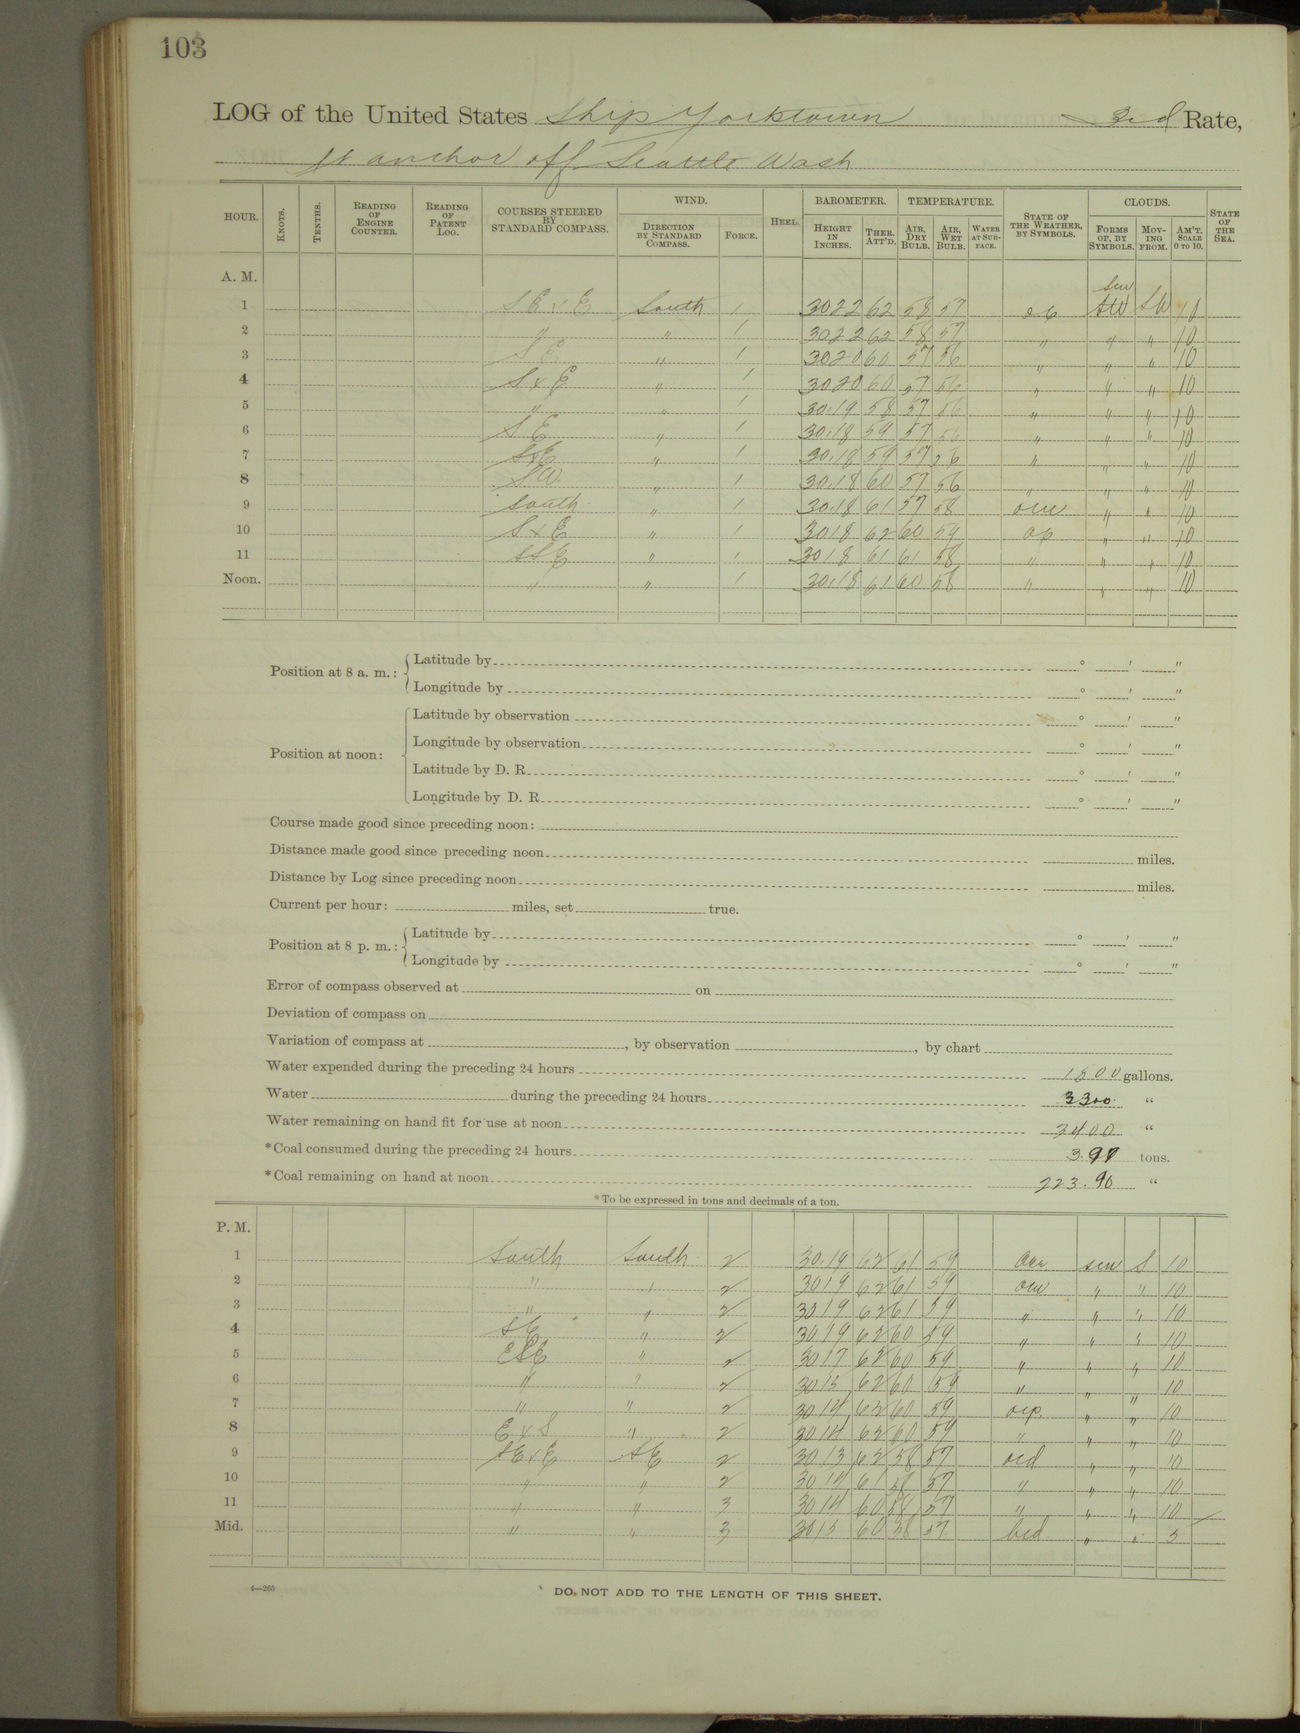 103
LOG of the United States Ship Yorktown 3rd Rate,
At anchor off Seattle Wash
HOUR. KNOTS. TENTHS. READING OF ENGINE COUNTER. READING OF PATENT LOG. COURSES STEERED BY STANDARD COMPASS. WIND. DIRECTION BY STANDARD COMPASS. FORCE. HEEL. BAROMETER. HEIGHT IN INCHES. THER. ATT'D. TEMPERATURE. AIR, DRY BULB. AIR, WET BULB. WATER AT SURFACE. STATE OF THE WEATHER, BY SYMBOLS. CLOUDS. FORMS OF, BY SYMBOLS. MOVING FROM. AM'T. SCALE 0 TO 10. STATE OF THE SEA.
A. M.
scu
1 SE x E South 1 3022 62 58 57 SW 10
2 " " 1 3022 62 58 57 " " " 10
3 SE " 1 3020 60 57 56 " " " 10
4 S x E " 1 3020 60 57 56 " " " 10
5 " " 1 30.19 58 57 56 " " " 10
6 SE " 1 30.18 59 57 56 " " " 10
7 SxE " 1 30.18 59 57 56 " " " 10
8 SW " 1 30.18 60 57 56 " " " 10
9 South " 1 30.18 61 57 58 " " 10
10 S x E " 1 3018 62 60 59 " " 10
11 SSE " 1 3018 61 61 58 " " " 10
Noon. " " 1 30.18 61 60 58 " " " 10
Position at 8 a. m.: Latitude by ° ' "
Longitude by ° ' "
Position at noon: Latitude by observation ° ' "
Longitude by observation ° ' "
Latitude by D. R. ° ' "
Longitude by D. R. ° ' "
Course made good since preceding noon:
Distance made good since preceding noon miles.
Distance by Log since preceding noon miles.
Current per hour: miles, set true.
Position at 8 p. m.: Latitude by ° ' "
Longitude by ° ' "
Error of compass observed at on
Deviation of compass on
Variation of compass at , by observation , by chart
Water expended during the preceding 24 hours 1800 gallons.
Water during the preceding 24 hours 3300 "
Water remaining on hand fit for use at noon 3400 "
*Coal consumed during the preceding 24 hours 3.97 tons.
*Coal remaining on hand at noon 223.90 "
*To be expressed in tons and decimals of a ton.
P. M.
1 South South 2 30.19 62 61 59 scu S 10
2 " " 2 3019 62 61 59 ocu " " 10
3 " " 2 3019 62 61 59 " " " 10
4 SE " 2 3019 62 60 59 " " " 10
5 ESE " 2 3017 62 60 59 " " " 10
6 " " 2 3015 62 60 59 " " " 10
7 " " 2 3014 62 60 59 ocp. " " 10
8 E x S " 2 3014 62 60 59 " " " 10
9 SE x E SE 2 3013 62 58 57 ocd " " 10
10 " " 2 3014 61 58 57 " " " 10
11 " " 3 3014 60 58 57 " " " 10
Mid. " " 3 3015 60 58 57 bcd " " 5
4—265
DO NOT ADD TO THE LENGTH OF THIS SHEET.